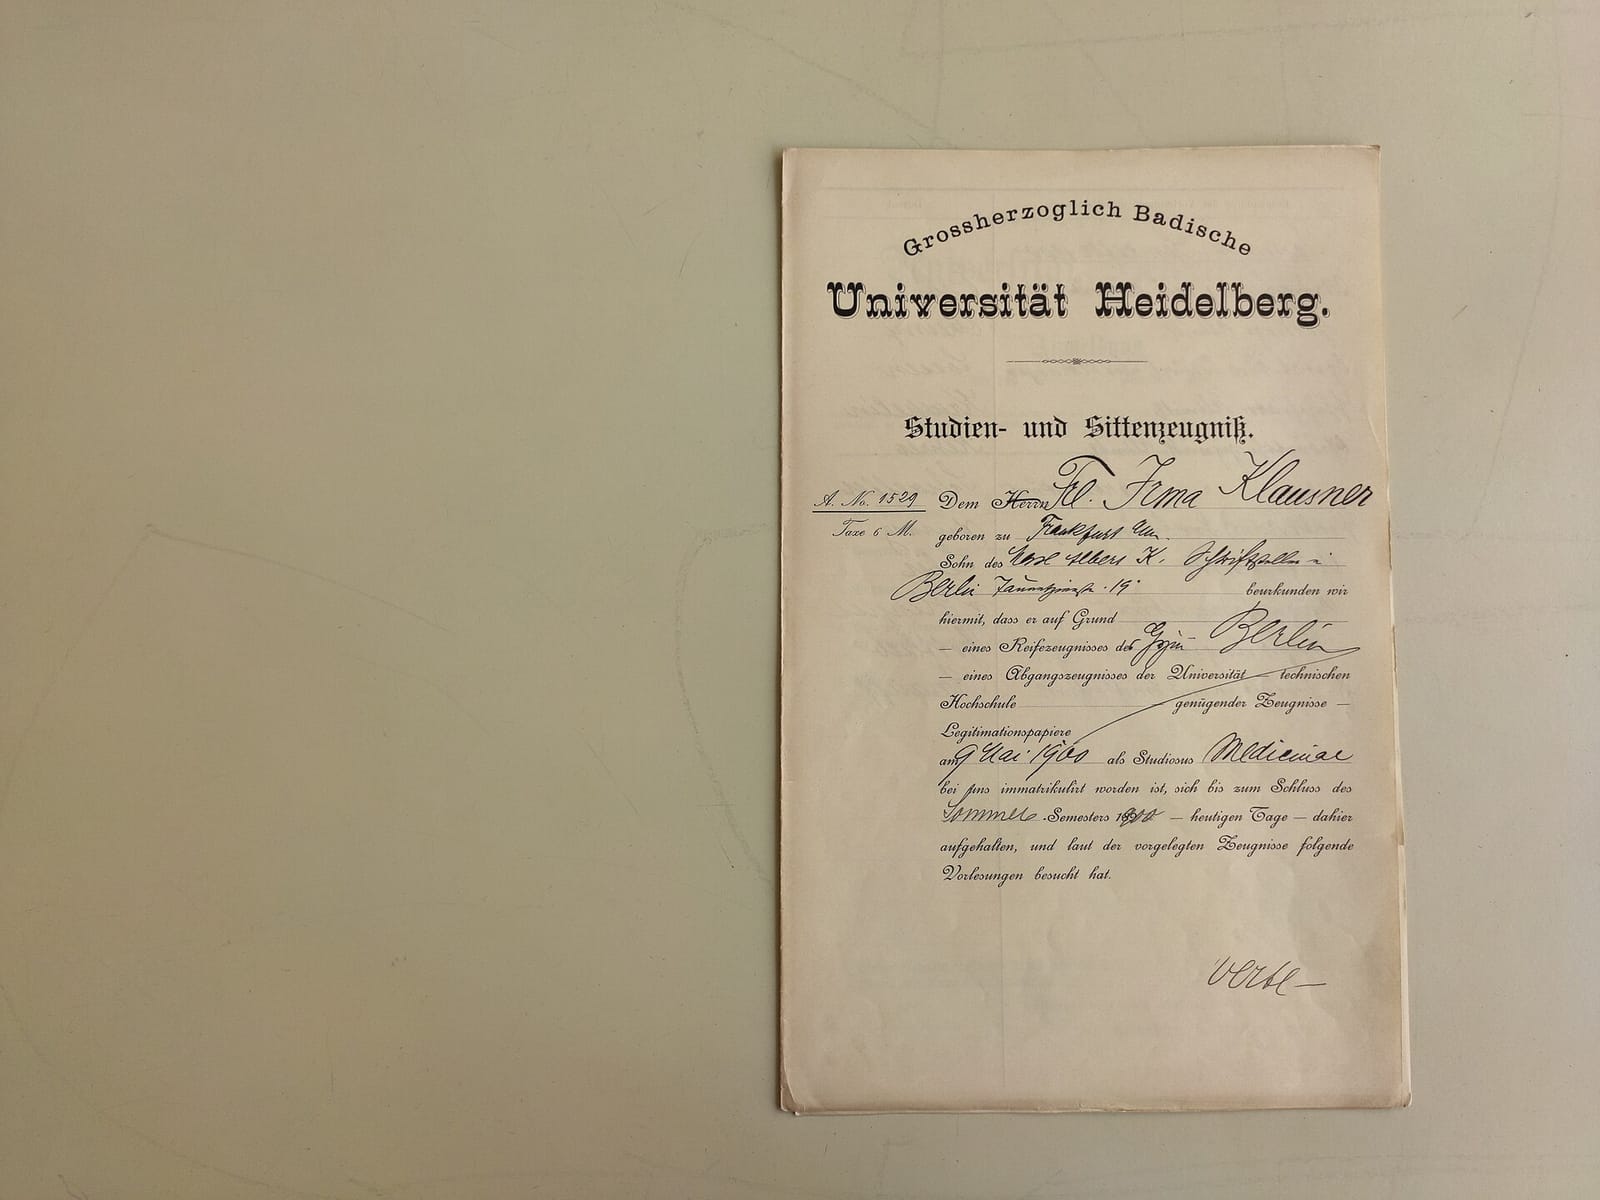 Grossherzoglich Badische
Universität Heidelberg.
Studien- und Sittenzeugniß.
A. No. 1529
Taxe 6 M.
Dem Herrn Frl. Irma Klausner
geboren zu Frankfurt
Sohn des Albert K. Schriftsteller i
Berlin 19 beurkunden wir
hiermit, dass er auf Grund
— eines Reifezeugnisses des Gym Berlin
— eines Abgangszeugnisses der Universität — technischen
Hochschule genügender Zeugnisse —
Legitimationspapiere
am 9 Mai 1900 als Studiosus Medicinae
bei uns immatrikulirt worden ist, sich bis zum Schluss des
Sommer -Semesters 1900 — heutigen Tage — dahier
aufgehalten, und laut der vorgelegten Zeugnisse folgende
Vorlesungen besucht hat.